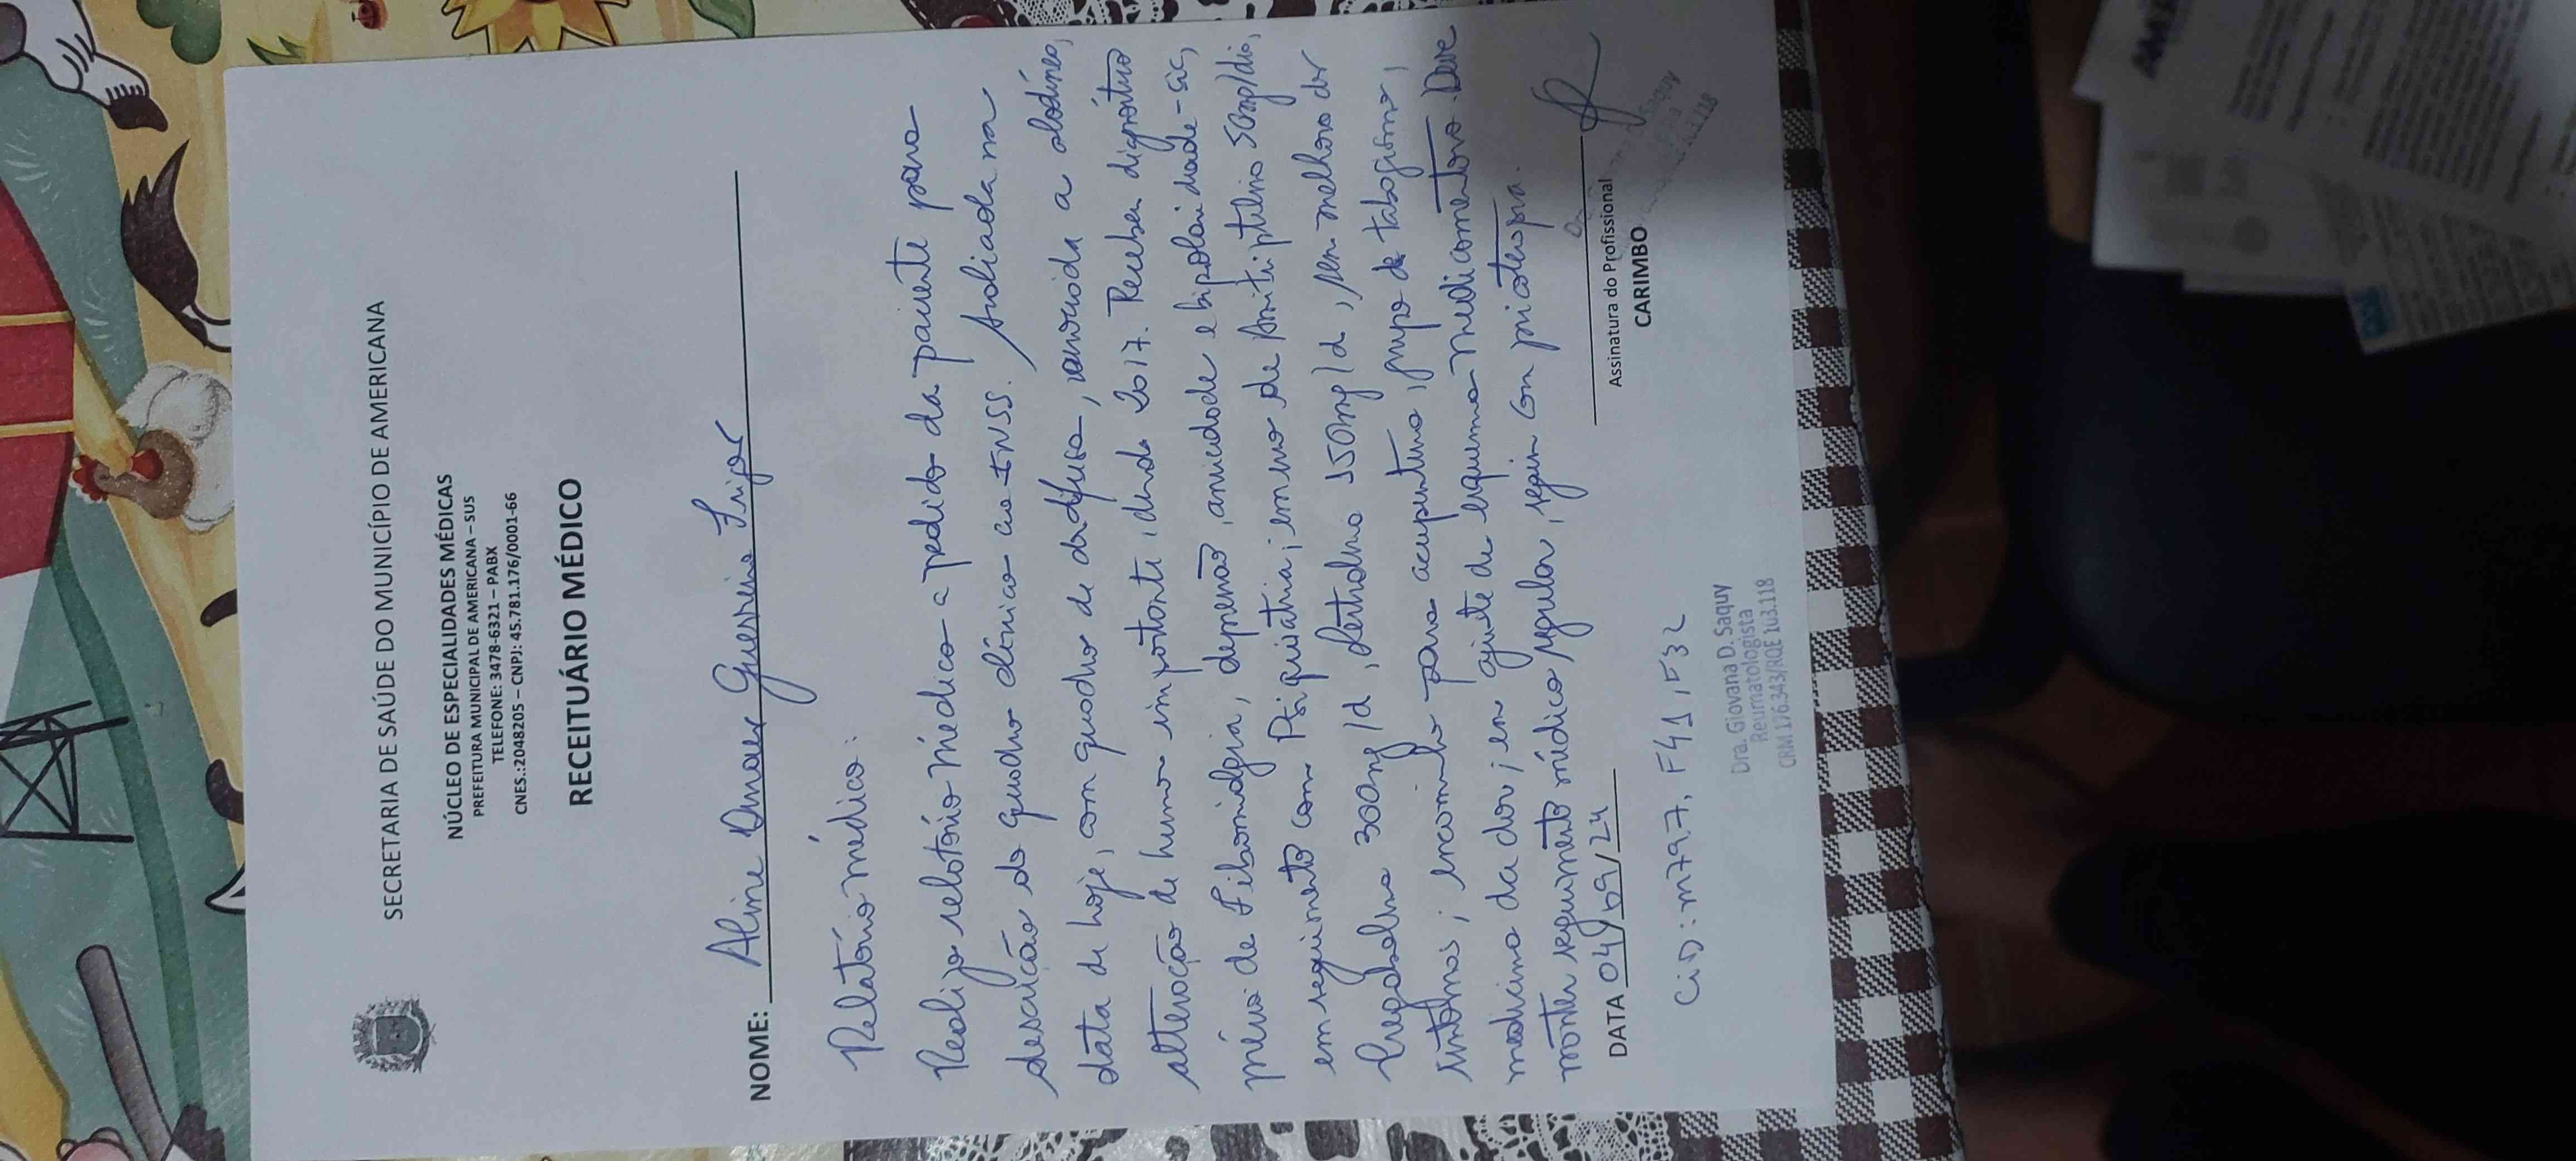 SECRETARIA DE SAÚDE DO MUNICÍPIO DE AMERICANA
NÚCLEO DE ESPECIALIDADES MÉDICAS
PREFEITURA MUNICIPAL DE AMERICANA – SUS
TELEFONE: 3478-6321 – PABX
CNES.:2048205 – CNPJ: 45.781.176/0001-66
RECEITUÁRIO MÉDICO
NOME: Aline Guerreiro
Relatório médico:
Realizo relatório médico a pedido da paciente para
descrição do quadro clínico ao INSS. Avaliada na
data de hoje, com quadro de dor difusa, associada a alodínea,
alteração de humor importante, desde 2017. Recebeu diagnóstico
prévio de Fibromialgia, depressão, ansiedade e bipolaridade - sic,
em seguimento com Psiquiatria; em uso de Amitriptilina 50mg/dia,
Pregabalina 300mg/d, Sertralina 150mg/d, sem melhora dos
sintomas; encaminho para acupuntura, grupo de tabagismo,
medicina da dor; em ajuste de esquema medicamentoso. Deve
manter seguimento médico regular, seguir com psicoterapia.
DATA 04/09/24
Assinatura do Profissional
CARIMBO
CID: M79.7, F41, F32
Dra. Giovana D. Saquy
Reumatologista
CRM 176.343/RQE 103.118